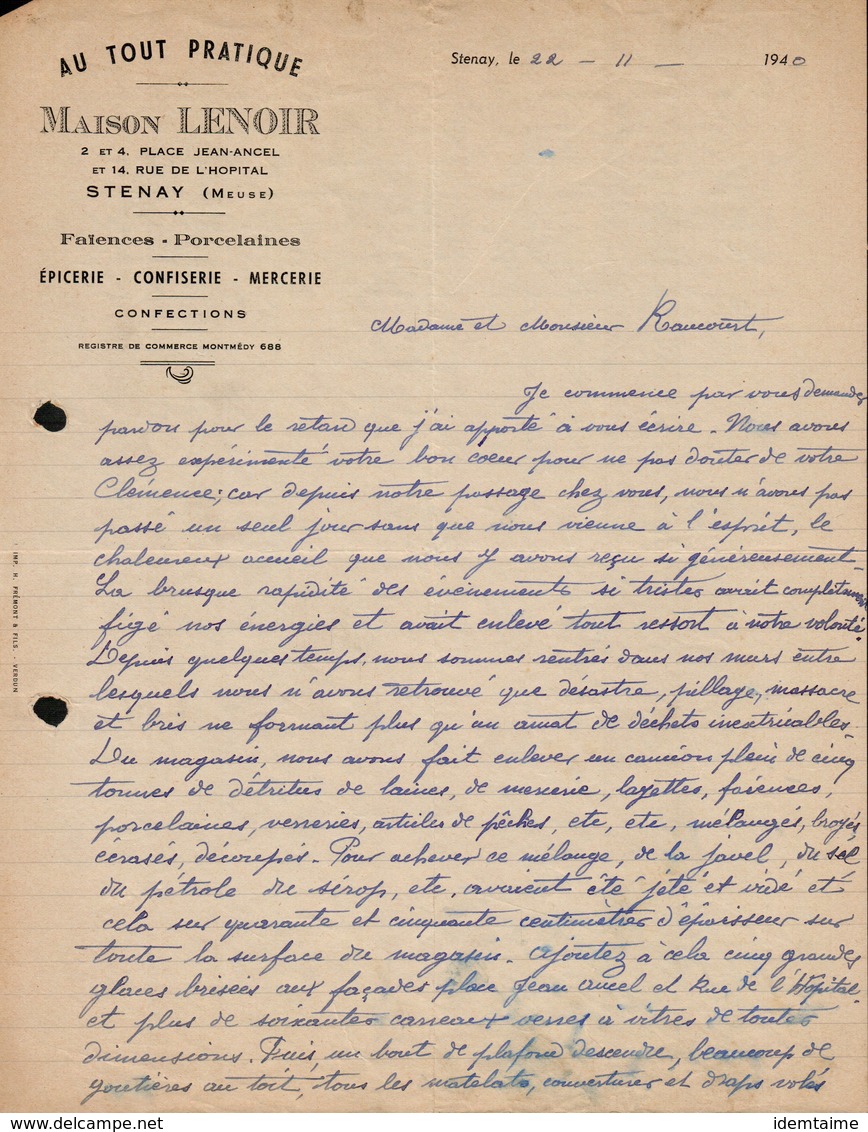 AU TOUT PRATIQUE
MAISON LENOIR
2 ET 4, PLACE JEAN-ANCEL
ET 14, RUE DE L'HOPITAL
STENAY (MEUSE)
Faïences - Porcelaines
ÉPICERIE - CONFISERIE - MERCERIE
CONFECTIONS
REGISTRE DE COMMERCE MONTMÉDY 688
Stenay, le 22 - 11 - 1940
Madame et Monsieur Raucourt,
Je commence par vous demander
pardon pour le retard que j'ai apporté à vous écrire. Nous avons
assez expérimenté votre bon coeur pour ne pas douter de votre
Clémence; car depuis notre passage chez vous, nous n'avons pas
passé un seul jour sans que nous vienne à l'esprit, le
chaleureux accueil que nous y avons reçu si généreusement.
La brusque rapidité des événements si tristes avait complètement
figé nos énergies et avait enlevé tout ressort à notre volonté.
Depuis quelques temps, nous sommes rentrés dans nos murs entre
lesquels nous n'avons retrouvé que désastre, pillage, massacre
et bris ne formant plus qu'un amat de déchets inextricables.
Du magasin, nous avons fait enlever un camion plein de cinq
tonnes de détritus de laines, de mercerie, layettes, faïences,
porcelaines, verreries, articles de pêches, etc, etc, mélangés, broyés,
écrasés, découpés. Pour achever ce mélange, de la javel, du sel
du pétrole du sérop, etc, avaient été jeté et vidé et
cela sur quarante et cinquante centimètres d'épaisseur sur
toute la surface du magasin. Ajoutez à cela cinq grandes
glaces brisées aux façades place Jean Ancel et Rue de l'Hôpital
et plus de soixantes carreaux verres à vitres de toutes
dimensions. Puis, un bout de plafond descendu, beaucoup de
goutières au toit, tous les matelats, couvertures et draps volés
IMP. H. FRÉMONT & FILS - VERDUN
identaime